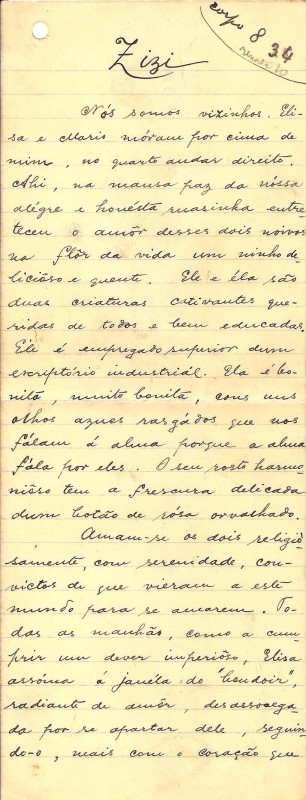 corpo 8
34
Zizi
Nós somos vizinhos. Eli-
sa e Mario móram por cima de
mim, no quarto andar direito.
Ahi, na mansa paz da nóssa
alégre e honésta ruasinha entre
teceu o amôr desses dois noivos
na flôr da vida um ninho de
licióso e quente. Ele e éla são
duas criaturas cativantes que-
ridas de todos e bem educadas.
Ele é empregado superior dum
escriptório industriál. Ela é bo-
nita, muito bonita, com uns
olhos azues rasgádos que nos
fálam á alma porque a alma
fála por eles. O seu rosto harmo-
nióso tem a frescura delicada
dum botão de rósa orvalhado.
Amam-se os dois religió-
samente, com serenidade, con-
victos de que vieram a este
mundo para se amarem. To-
das as manhãs, como a cum-
prir um dever imperióso, Elisa
assóma á janéla do "boudoir",
radiante de amôr, desassocega-
da por se apartar dele, seguin-
do-o, mais com o coração que